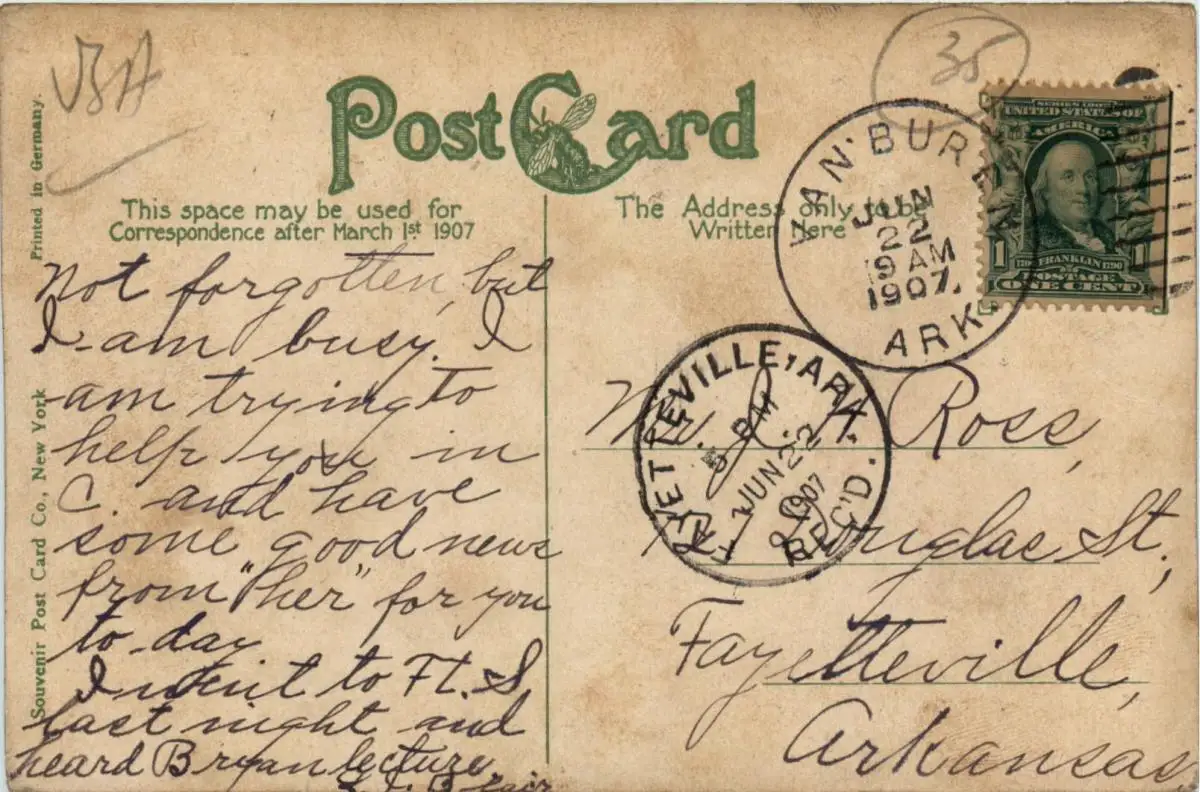 VBA
35
Post Card
This space may be used for
Correspondence after March 1st 1907
The Address only to be
Written Here
Printed in Germany.
Souvenir Post Card Co., New York
SERIES 1902
UNITED STATES OF
AMERICA
1 1
1706 FRANKLIN 1790
POSTAGE
ONE CENT
VAN BUREN
JUN
22
9 AM
1907.
ARK.
FAYETTEVILLE, ARK.
5 PM
JUN 22
1907
REC'D.
Not forgotten, but
I am busy. I
am trying to
help you in
C. and have
some good news
from "her" for you
to-day
I went to Ft. S.
last night and
heard Bryan lecture.
Blair
Mr. Ross,
Douglas St.,
Fayetteville,
Arkansas